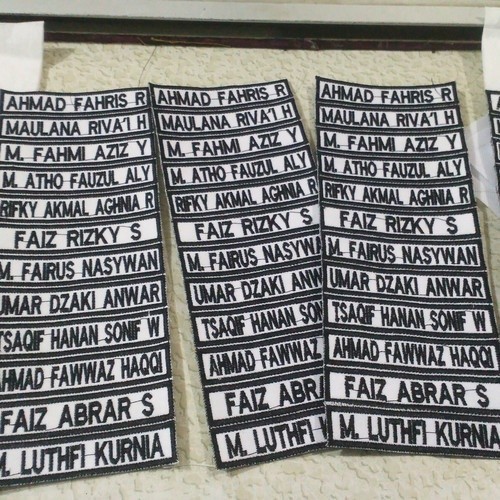 AHMAD FAHRIS R
MAULANA RIVA'I H
M. FAHMI AZIZ Y
M. ATHO FAUZUL ALY
RIFKY AKMAL AGHNIA R
FAIZ RIZKY S
M. FAIRUS NASYWAN
UMAR DZAKI ANWAR
TSAQIF HANAN SONIF W
AHMAD FAWWAZ HAQQI
FAIZ ABRAR S
M. LUTHFI KURNIA
AHMAD FAHRIS R
MAULANA RIVA'I H
M. FAHMI AZIZ Y
M. ATHO FAUZUL ALY
RIFKY AKMAL AGHNIA R
FAIZ RIZKY S
M. FAIRUS NASYWAN
UMAR DZAKI ANWAR
TSAQIF HANAN SON
AHMAD FAWWAZ
FAIZ ABRA
M. LUTHFI
AHMAD FAHRIS R
MAULANA RIVA'I H
M. FAHMI AZIZ Y
M. ATHO FAUZUL ALY
RIFKY AKMAL AGHNIA R
FAIZ RIZKY S
M. FAIRUS NASYWAN
UMAR DZAKI ANWAR
TSAQIF HANAN SONIF W
AHMAD FAWWAZ HAQQI
FAIZ ABRAR S
M. LUTHFI KURNIA